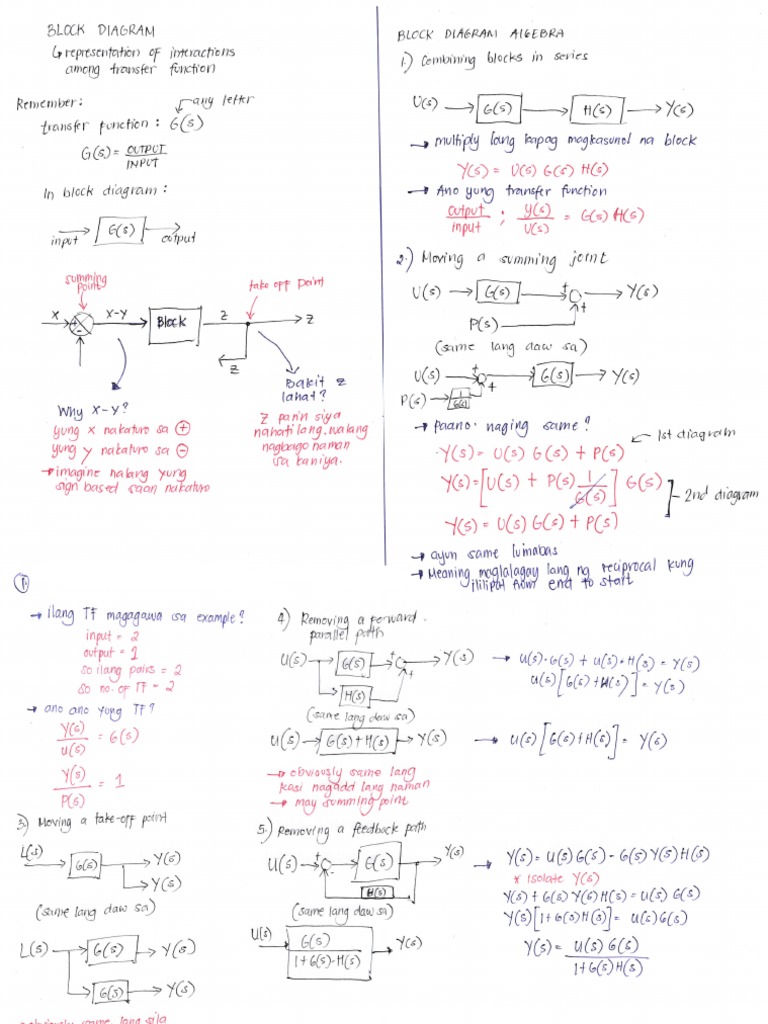 BLOCK DIAGRAM
↳ representation of interactions
among transfer function
Remember:
any letter
transfer function : G(s)
G(s) = OUTPUT / INPUT
In block diagram :
input G(s) output
summing point
take off point
X + - X-Y BLOCK Z Z
Z
Why X-Y?
yung x nakaturo sa ⊕
yung y nakaturo sa ⊖
→ imagine nalang yung
sign based saan nakaturo
Bakit Z
lahat?
Z parin siya
nahati lang, walang
nagbago naman
sa kaniya.
BLOCK DIAGRAM ALGEBRA
1.) Combining blocks in series
U(s) G(s) H(s) Y(s)
→ multiply lang kapag magkasunod na block
Y(s) = U(s) G(s) H(s)
→ Ano yung transfer function
output / input ; Y(s) / U(s) = G(s) H(s)
2.) Moving a summing joint
U(s) G(s) + + Y(s)
P(s)
(same lang daw sa)
U(s) + + G(s) Y(s)
P(s) 1/G(s)
→ paano naging same?
Y(s) = U(s) G(s) + P(s) 1st diagram
Y(s) = [U(s) + P(s) 1/G(s)] G(s)
2nd diagram
Y(s) = U(s) G(s) + P(s)
→ ayun same lumabas
→ Meaning maglalagay lang ng reciprocal kung
ililipat from end to start
1.
→ ilang TF magagawa sa example?
input = 2
output = 1
so ilang pairs = 2
so no. of TF = 2
→ ano ano yung TF?
Y(s) / U(s) = G(s)
Y(s) / P(s) = 1
3.) Moving a take-off point
L(s) G(s) Y(s)
Y(s)
(same lang daw sa)
L(s) G(s) Y(s)
G(s) Y(s)
obviously same lang sila
4.) Removing a forward
parallel path
U(s) G(s) + + Y(s)
H(s)
(same lang daw sa)
U(s) G(s) + H(s) Y(s)
→ obviously same lang
kasi nagadd lang naman
→ may summing point
→ U(s)•G(s) + U(s)•H(s) = Y(s)
U(s) [G(s) + H(s)] = Y(s)
→ U(s) [G(s) + H(s)] = Y(s)
5.) Removing a feedback path
U(s) + - G(s) Y(s)
H(s)
(same lang daw sa)
U(s) G(s) / 1 + G(s)•H(s) Y(s)
→ Y(s) = U(s) G(s) - G(s) Y(s) H(s)
* isolate Y(s)
Y(s) + G(s) Y(s) H(s) = U(s) G(s)
Y(s) [1 + G(s) H(s)] = U(s) G(s)
Y(s) = U(s) G(s) / 1 + G(s) H(s)